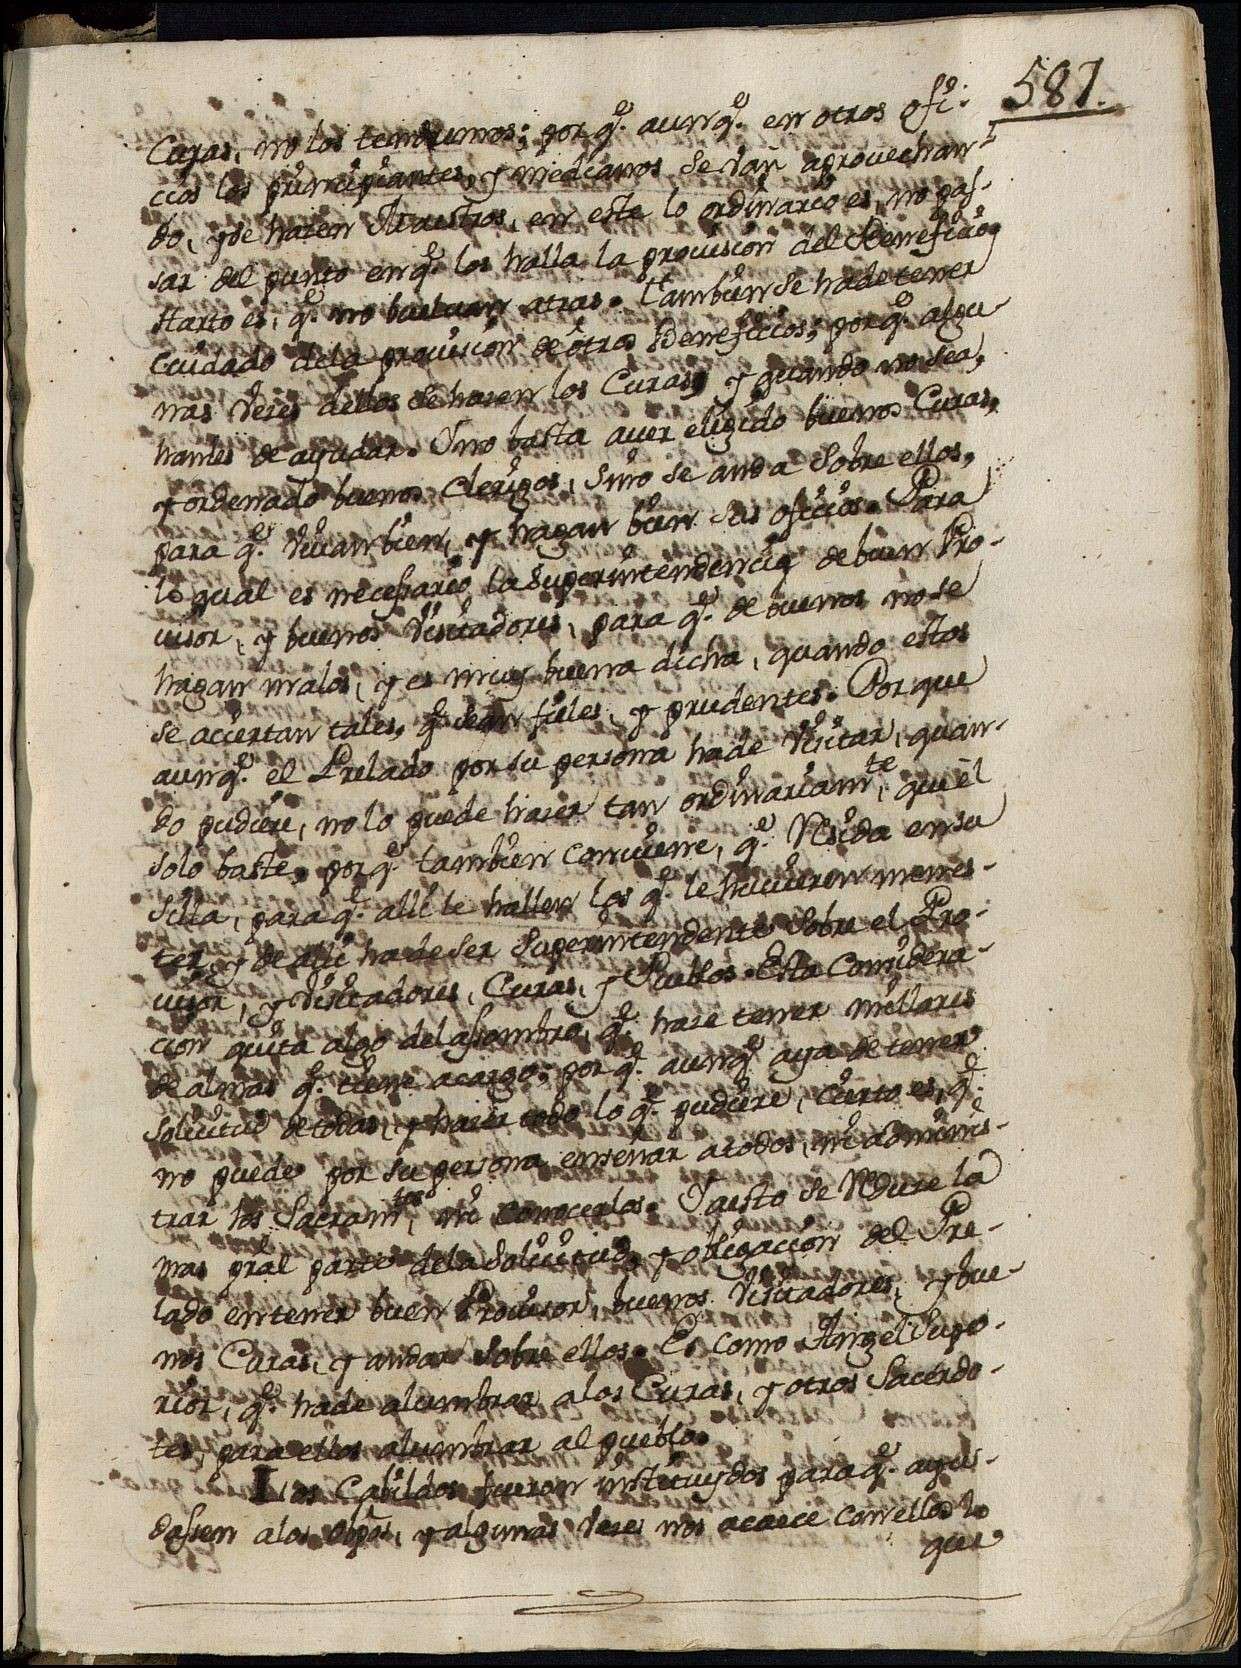 587.
Curas, no los tendremos; por q̃. aunq̃. en otros ofi-
cios los principiantes, y medianos se van aprouechan
do, y se hazen Maestros, en este lo ordinario es, no pas-
sar del punto en q̃. los halla la prouision del Beneficio,
Harto es, q̃. no bueluan atras. Tambien se ha de tener
cuidado dela prouision de otros Beneficios; por q̃. algu-
nas vezes dellos se hazen los Curas, y quando no sea,
hanles de ayudar. Y no basta auer eligido buenos Curas,
y ordenado buenos Clerigos, sino se anda sobre ellos,
para q̃. viuan bien, y hagan bien sus oficios. Para
lo qual es necessario la superintendencia de buen Pro-
uisor, y buenos Visitadores, para q̃. de buenos no se
hagan malos, y es muy buena dicha, quando estos
se aciertan tales, q̃. sean fieles, y prudentes. Porque
aunq̃. el Prelado por su persona ha de visitar, quan-
do pudiere, no lo puede hazer tan ordinariamte, que el
solo baste, porq̃. tambien conuiene, q̃. Resida en su
silla, para q̃. alli le hallen los q̃. le huuieren menes-
ter, y de alli ha de ser superintendente sobre el Pro-
uisor, y Visitadores, Curas, y Pueblos. Esta considera-
cion quita algo del assombro, q̃. haze tener millares
de almas q̃. tiene a cargo; por q̃. aunq̃. aya de tener
solicitud de todas, y hazer todo lo q̃. pudiere, cierto es, q̃.
no puede por su persona enseñar a todos, ni adminis-
trar los Sacramtos, ni conocerlos. Y a esto se Reduze la
mas pral parte dela solicitud, y obligacion del Pre-
lado en tener buen Prouisor, buenos Visitadores, y bue-
nos Curas, y andar sobre ellos. Es como Angel supe-
rior, q̃. ha de alumbrar a los Curas, y otros Sacerdo-
tes, para ellos alumbrar al pueblo.
Los Cabildos fueron instituydos para q̃. ayu-
dassen a los Obpos, y algunas vezes nos acaece con ellos lo
que